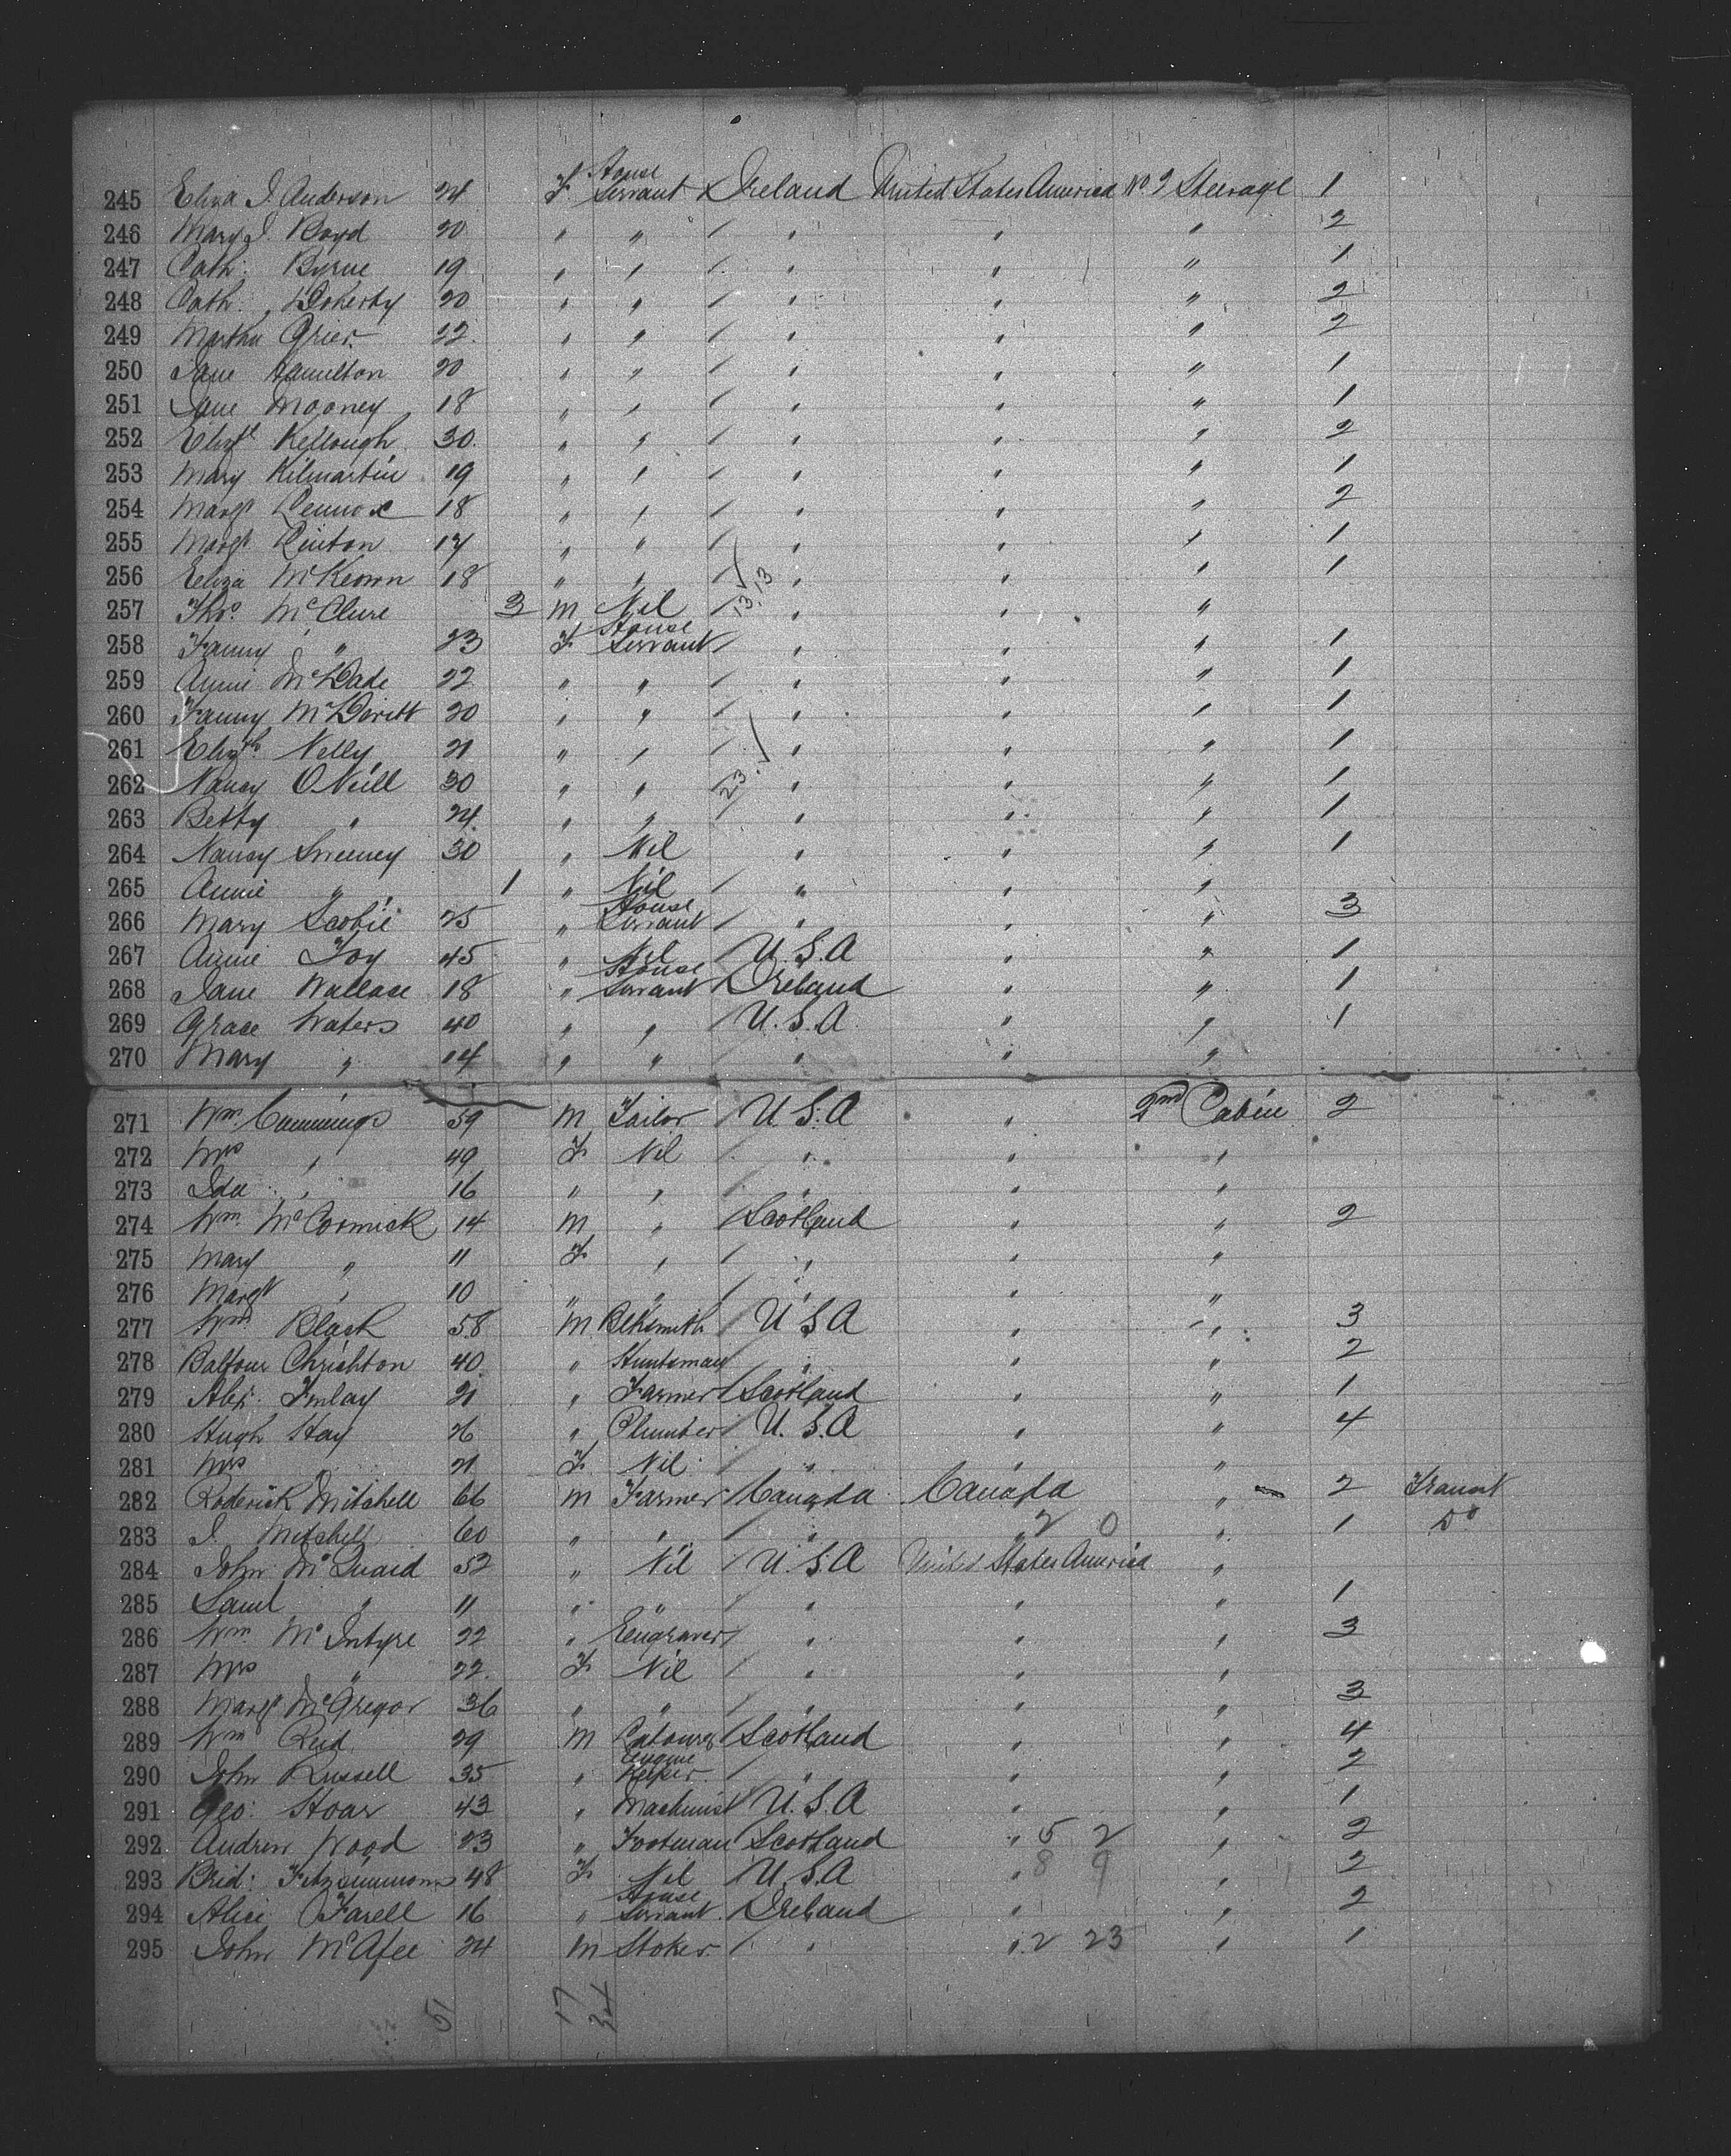 245 Eliza J. Anderson 24 F House Servant Ireland United States America No 2 Steerage 1
246 Mary J. Boyd 20 " " / " " " 2
247 Cath: Byrne 19 " " / " " " 1
248 Cath: Doherty 20 " " / " " " 2
249 Martha Grier 22 " " / " " " 2
250 Jane Hamilton 20 " " / " " " 1
251 Jane Mooney 18 " " / " " " 1
252 Elizth Kellough 30 " " / " " " 2
253 Mary Kilmartin 19 " " / " " " 1
254 Margt Lennox 18 " " / " " " 2
255 Margt Linton 17 " " / " " " 1
256 Eliza McKeown 18 " " / " " " 1
257 Thos. McClure 3 M Nil / 13.13 " " "
258 Fanny " 23 F House Servant / " " " 1
259 Annie McDade 22 " " / " " " 1
260 Fanny McDevitt 20 " " / " " " 1
261 Elizth. Nelly 21 " " / " " " 1
262 Nancy O'Neill 30 " " 23. " " " 1
263 Betty " 24 " " / " " " 1
264 Nancy Sweeney 30 " Nil " " " 1
265 Annie " 1 " Nil / " " "
266 Mary Scobie 25 " House Servant / " " " 3
267 Annie Foy 45 " Nil / U.S.A " " 1
268 Jane Wallace 18 " House Servant / Ireland " " 1
269 Grace Waters 40 " " / U.S.A " " 1
270 Mary " 14 " " / " " "
271 Wm. Cummings 59 M Tailor / U.S.A " 2nd Cabin 2
272 Mrs " 49 F Nil / " " "
273 Ida " 16 " " / " " "
274 Wm. McCormick 14 M " / Scotland " " 2
275 Mary " 11 F " / " " "
276 Margt " 10 " " / " " "
277 Wm. Black 58 M Blksmith / U S A " " 3
278 Balfour Chrichton 40 " Huntsman / " " " 2
279 Alex. Finlay 21 " Farmer / Scotland " " 1
280 Hugh Hay 26 " Plumber / U.S.A " " 4
281 Mrs " 21 F Nil / " " "
282 Roderick Mitchell 66 M Farmer / Canada Canada " 2 Transit
283 J. Mitchell 60 " " / " " 2 0 " 1 Do
284 John McQuaid 52 " Nil / U.S.A United States America "
285 Saml " 11 " " / " " " 1
286 Wm. McIntyre 22 " Engraver / " " " 3
287 Mrs " 22 F Nil / " " "
288 Margt McGregor 36 " " / " " " 3
289 Wm Reid 29 M Labourer / Scotland " " 4
290 John Russell 35 " Engine Keeper / " " " 2
291 Geo: Hoar 43 " Machinist / U.S.A " " 1
292 Andrew Wood 23 " Footman Scotland " 5 2 " 2
293 Brid: Fitzsimmons 48 F Nil / U.S.A " 8 9 " 2
294 Alice O'Farell 16 " House Servant Ireland " " 2
295 John McAfee 24 M Stoker / " " 2 23 " 1
51 17 34